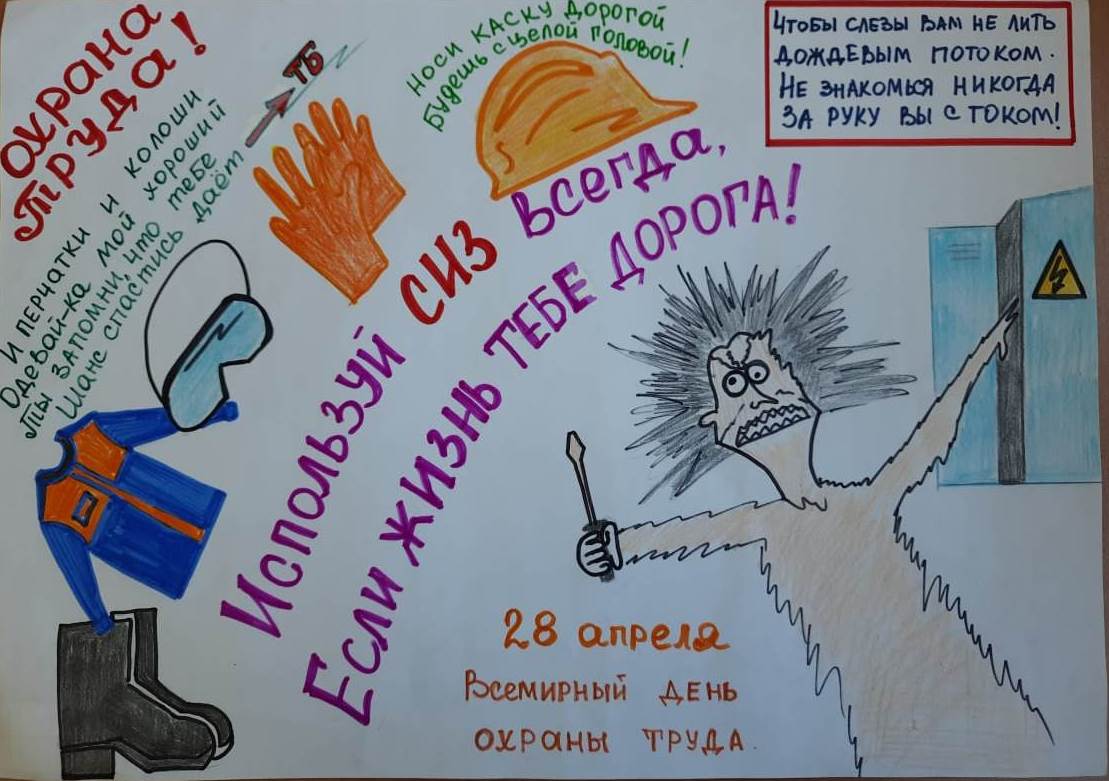 ОХРАНА
ТРУДА!
И ПЕРЧАТКИ И КОЛОШИ
Одевай-ка мой хороший
Ты запомни, что тебе
Шанс спастись даёт
ТБ
НОСИ КАСКУ ДОРОГОЙ
Будешь с целой головой!
ЧТОБЫ СЛЕЗЫ ВАМ НЕ ЛИТЬ
ДОЖДЕВЫМ ПОТОКОМ.
НЕ ЗНАКОМЬСЯ НИКОГДА
ЗА РУКУ ВЫ С ТОКОМ!
Используй СИЗ всегда,
Если ЖИЗНЬ ТЕБЕ ДОРОГА!
28 апреля
Всемирный день
охраны труда.